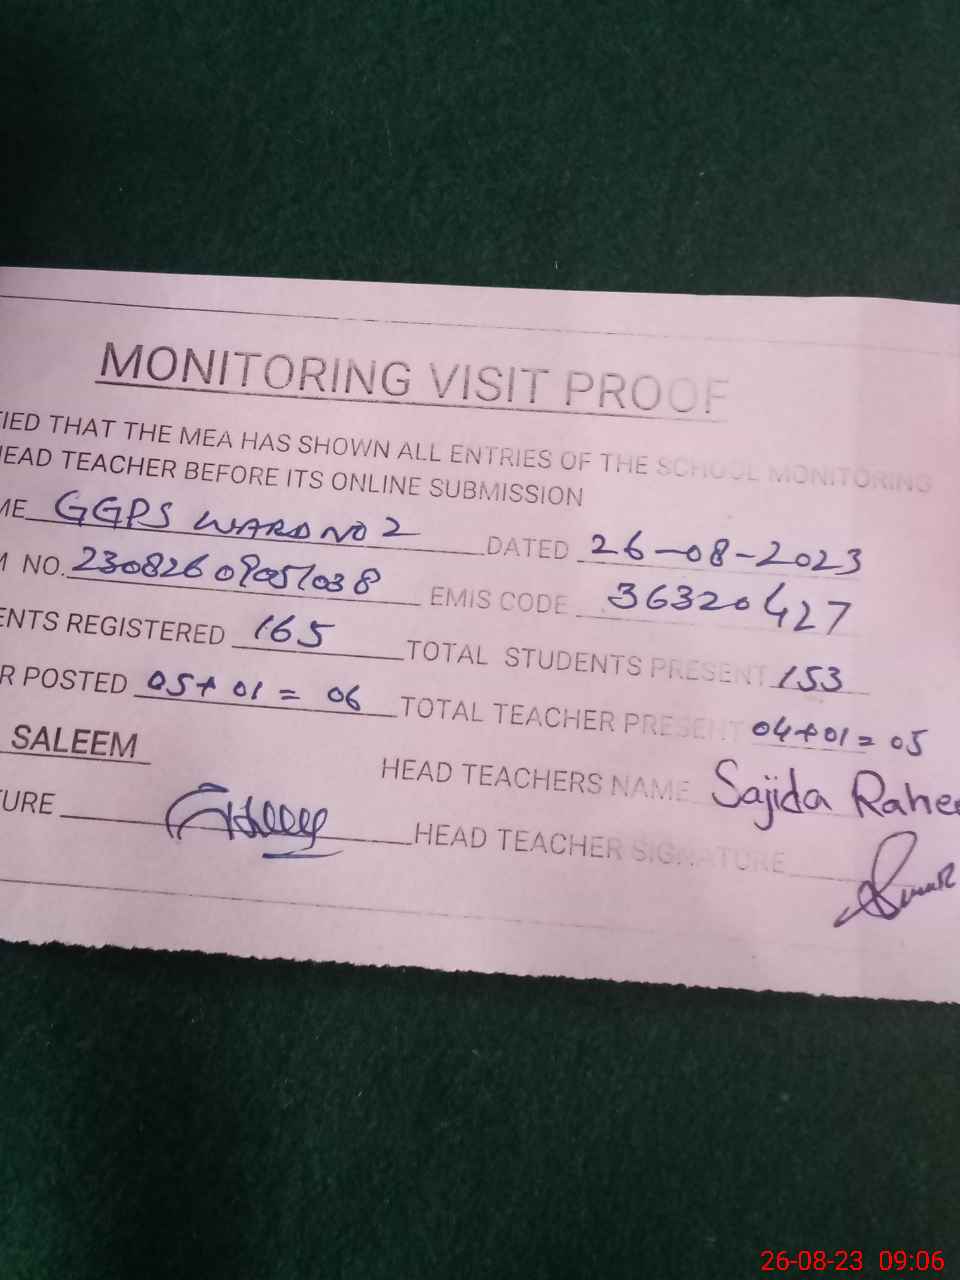 MONITORING VISIT PROOF
IED THAT THE MEA HAS SHOWN ALL ENTRIES OF THE SCHOOL MONITORING
EAD TEACHER BEFORE ITS ONLINE SUBMISSION
ME GGPS WARD NO 2 DATED 26-08-2023
M NO. 230826 09051038 EMIS CODE 36320427
ENTS REGISTERED 165 TOTAL STUDENTS PRESENT 153
R POSTED 05+01=06 TOTAL TEACHER PRESENT 04+01=05
SALEEM HEAD TEACHERS NAME Sajida Rahee
URE HEAD TEACHER SIGNATURE
26-08-23 09:06